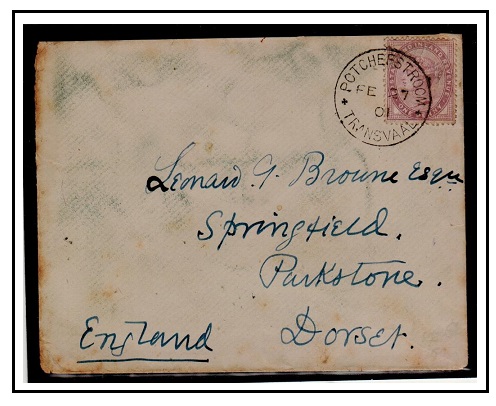 POTCHEFSTROOM
FE 7
01
TRANSVAAL
Leonard G. Browne Esqre
Springfield.
Parkstone.
Dorset.
England